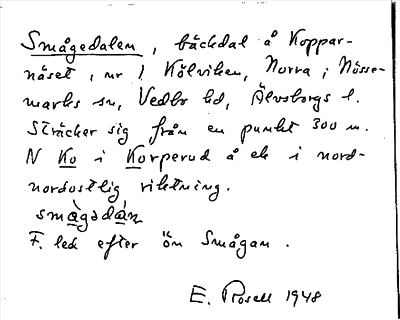 Smågedalen, bäckdal å Koppar-
näset, nr 1 Kölviken, Norra, i Nösse-
marks sn, Vedbo hd, Älvsborgs l.
Sträcker sig från en punkt 300 m.
N Ko i Korperud å ek i nord-
nordostlig riktning.
smågədán
F. led efter ön Smågan.
E. Rosell 1948